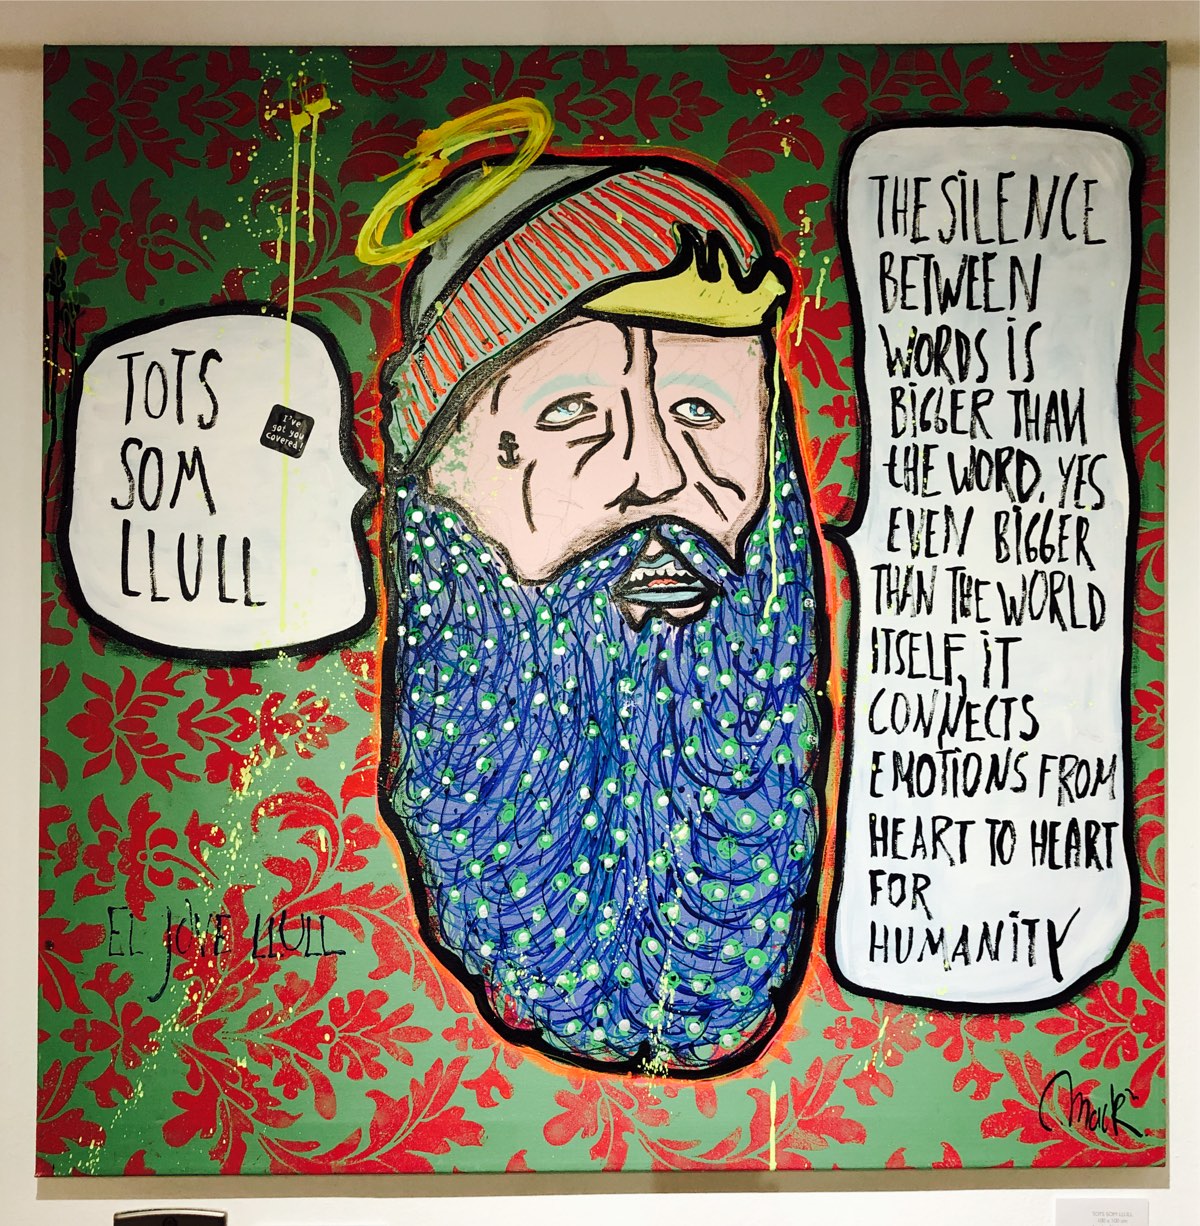 TOTS
SOM
LLULL
I've
got you
covered!
THE SILENCE
BETWEEN
WORDS IS
BIGGER THAN
THE WORD. YES
EVEN BIGGER
THAN THE WORLD
ITSELF, IT
CONNECTS
EMOTIONS FROM
HEART TO HEART
FOR
HUMANITY
EL JOVE LLULL
Mack
TOTS SOM LLULL